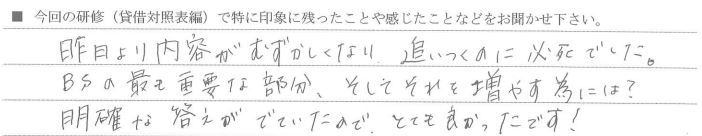 ■ 今回の研修（貸借対照表編）で特に印象に残ったことや感じたことなどをお聞かせ下さい。
昨日より内容がむずかしくなり、追いつくのに必死でした。
BSの最も重要な部分、そしてそれを増やす為には？
明確な答えがでていたので、とても良かったです！